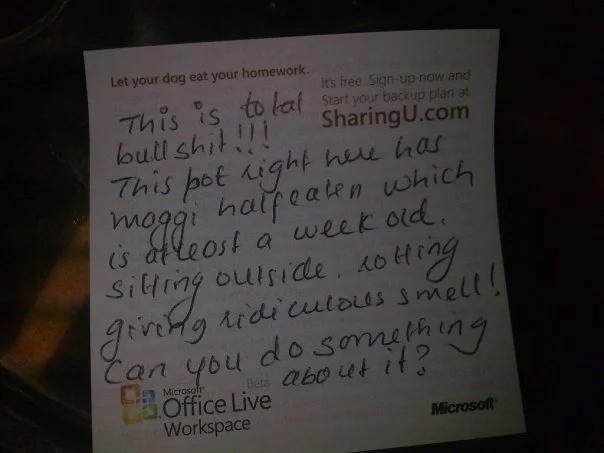 Let your dog eat your homework.
It's free. Sign-up now and
Start your backup plan at
SharingU.com
This is total
bullshit!!!
This pot right here has
maggi half eaten which
is atleast a week old.
sitting outside. rotting
giving ridiculous smell!
Can you do something
about it?
Beta
Microsoft®
Office Live
Workspace
Microsoft®